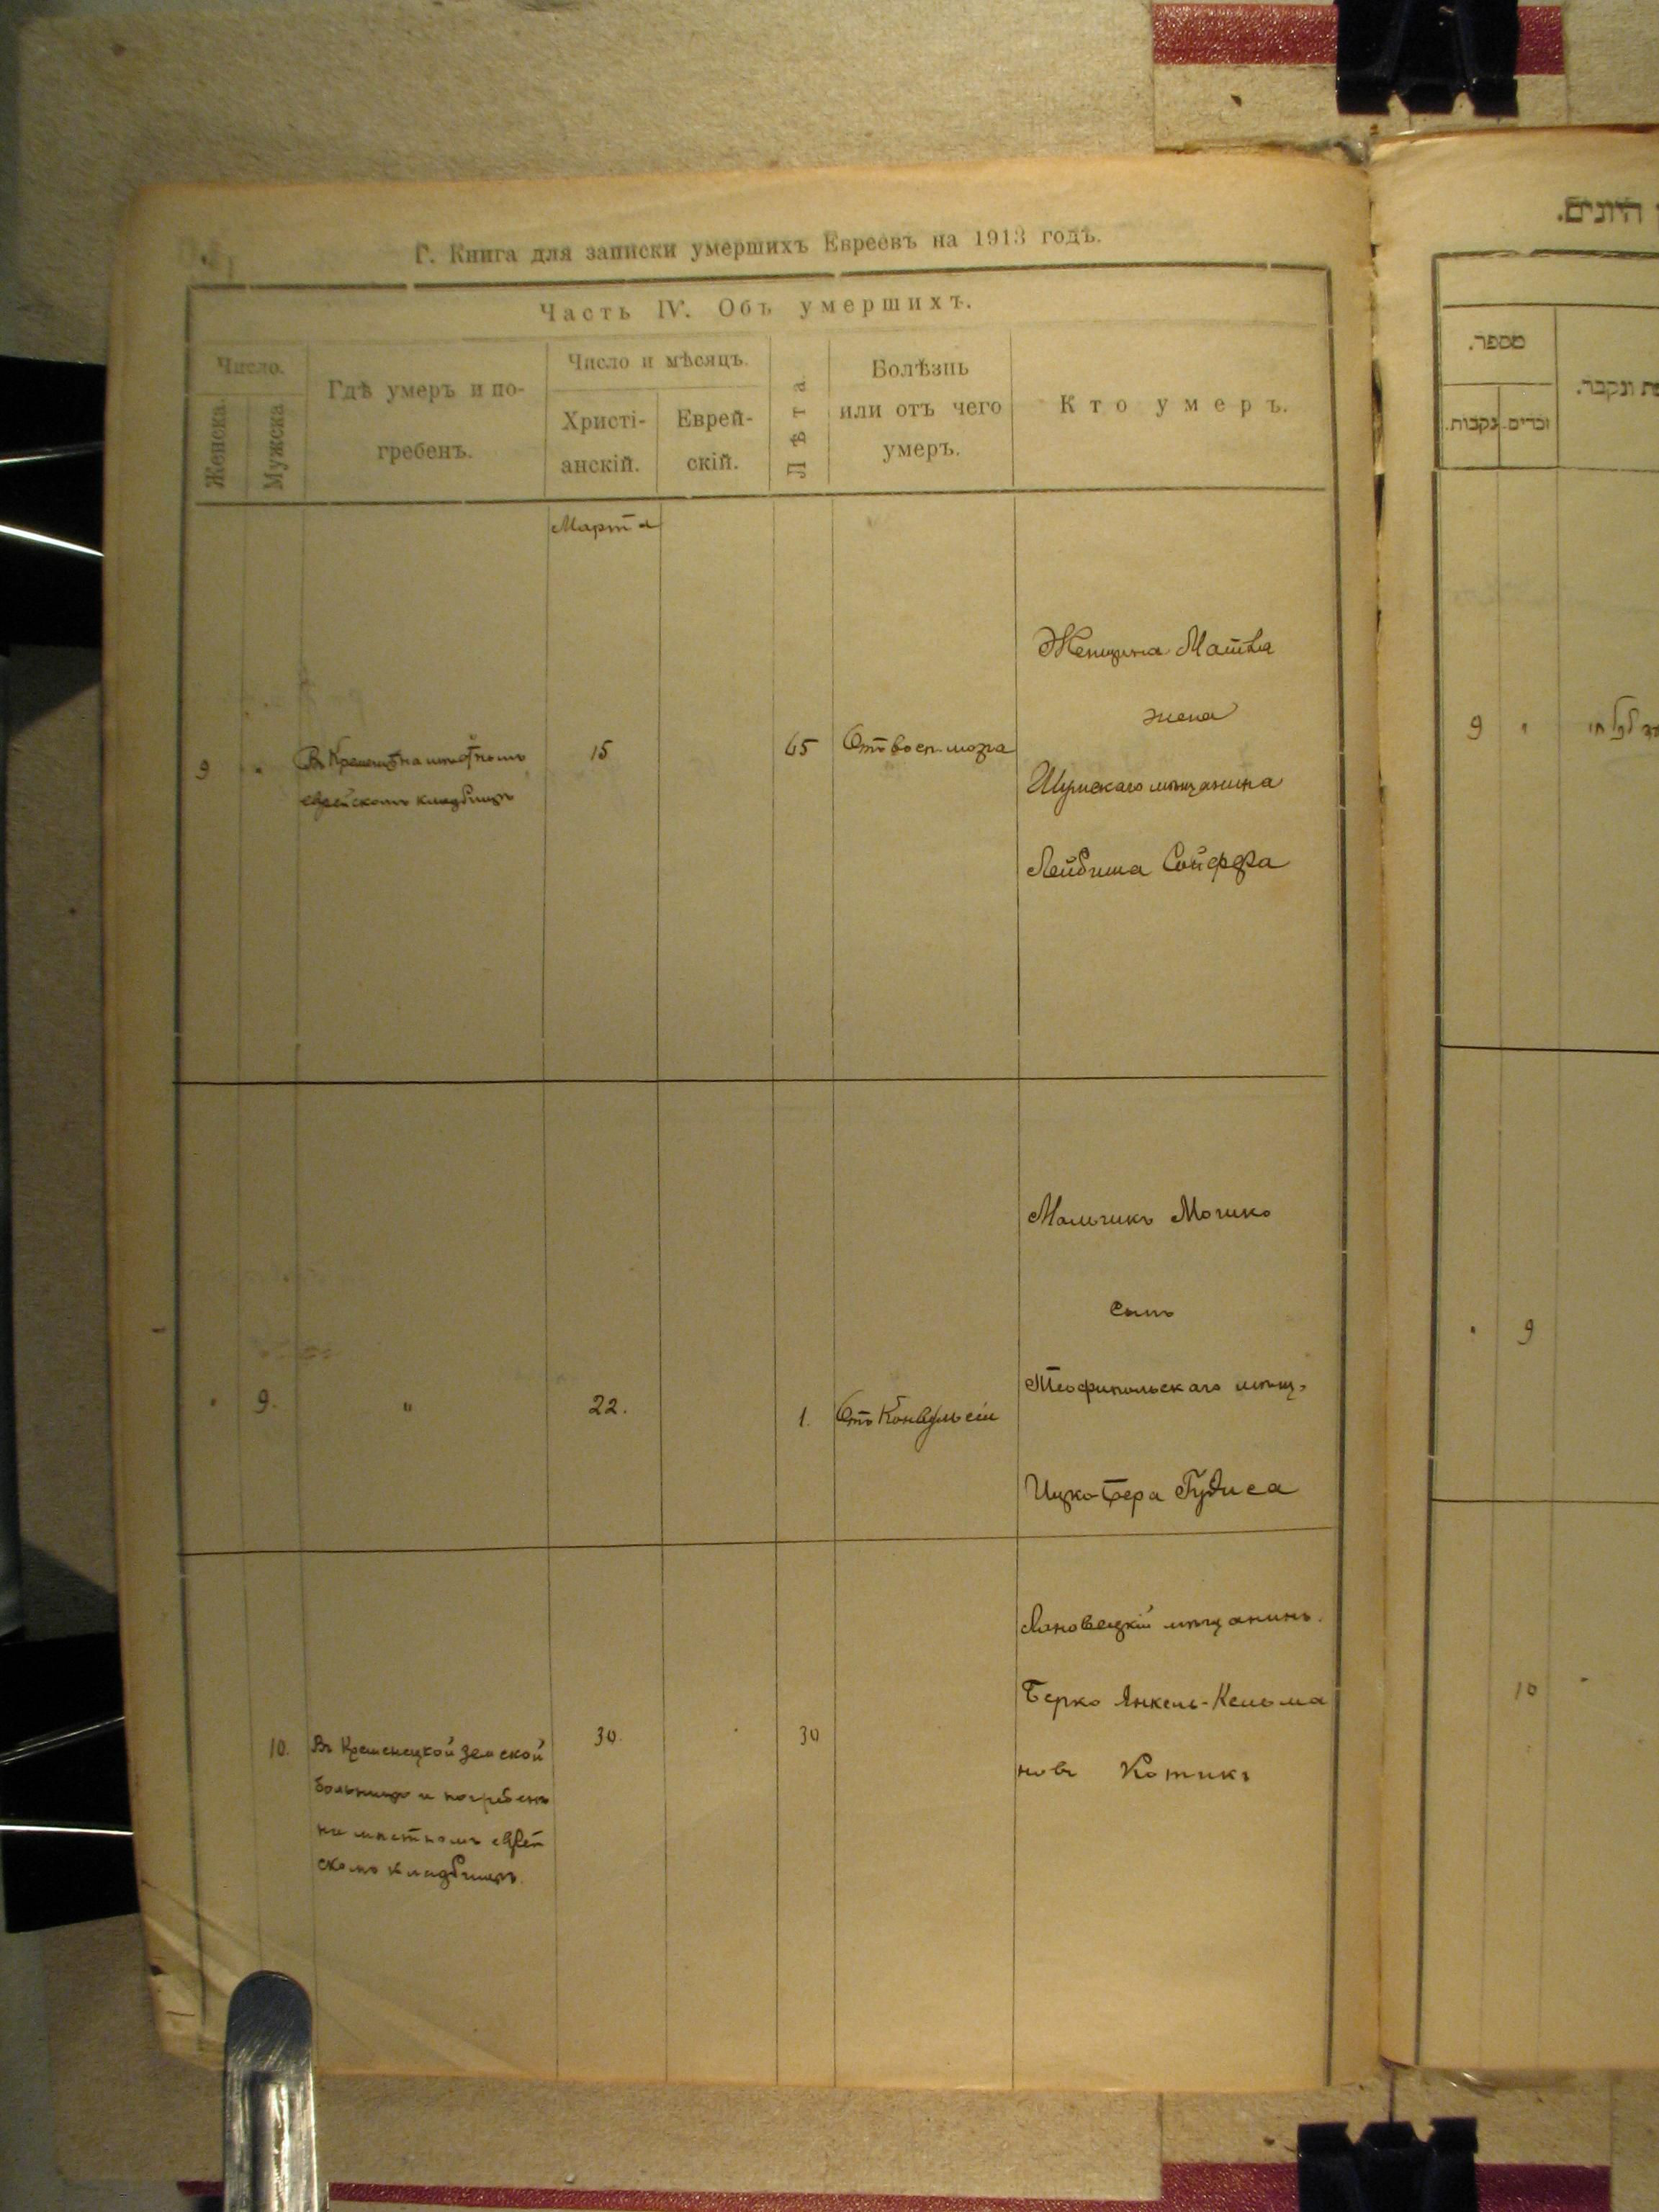 Г. Книга для записки умершихъ Евреевъ на 1913 годъ.
Часть IV. Объ умершихъ.
Число.
Женска.
Мужска
Гдѣ умеръ и по-
гребенъ.
Число и мѣсяцъ.
Христі-
анскій.
Еврей-
скій.
Лѣта.
Болѣзнь
или отъ чего
умеръ.
Кто умеръ.
Марта
9
Въ Кременцѣ на мѣстномъ
еврейскомъ кладбищѣ
15
65
Отъ восп. мозга
Женщина
жена
Шумскаго мѣщанина
Лейбиша
9.
"
22.
1.
Отъ Конвульсіи
Мальчикъ
сынъ
Теофипольскаго мѣщ.
Ицко-Бера Гудиса
10.
Въ Кременецкой земской
больницѣ и погребенъ
на мѣстномъ еврей
скомъ кладбищѣ.
30.
30
Лановецкій мѣщанинъ.
Берко Янкель-Кельма
новъ Котикъ
היונים.
מספר.
זכרים.
נקבות.
ונקבר.
9
9
10